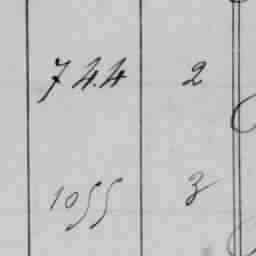 744 2
1055 3